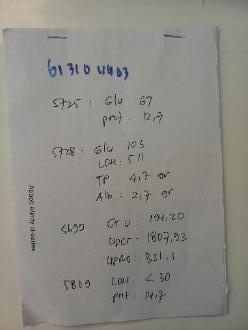 613104403
5725 : Glu 67
prot : 12,7
5728 : Glu 103
LDH : 511
TP 4,7 gr
Alb : 2,7 gr
5699 CTU : 194,20
UPCr : 1807,93
UPRO : 351,1
5809 LDH : < 30
prt : 14,7